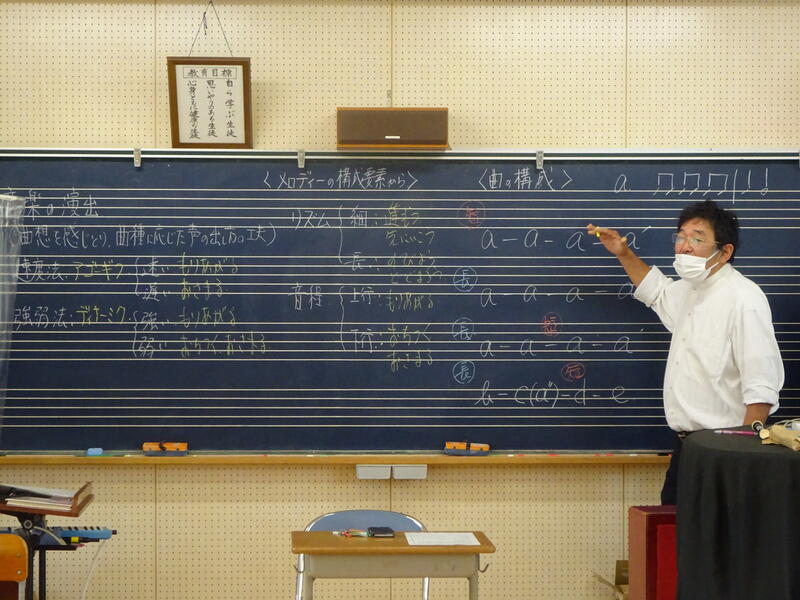 教育目標
自ら学ぶ生徒
思いやりのある生徒
心身ともに健康な生徒
音楽の演出
(曲想を感じとり、曲種に応じた声の出し方の工夫)
速度法:アゴーギク
速い もりあがる
遅い おさまる
強弱法:ディナーミク
強い もりあがる
弱い おちつく、おさまる
<メロディーの構成要素から>
リズム
細:進もう
長:
音程
上行:もりあがる
下行:おちつく
おさまる
<曲の構成>
a
短
a - a - a - a'
長
a - a - a - a
長 短
a - a - a - a'
長 短
b - c(a'') - d - e